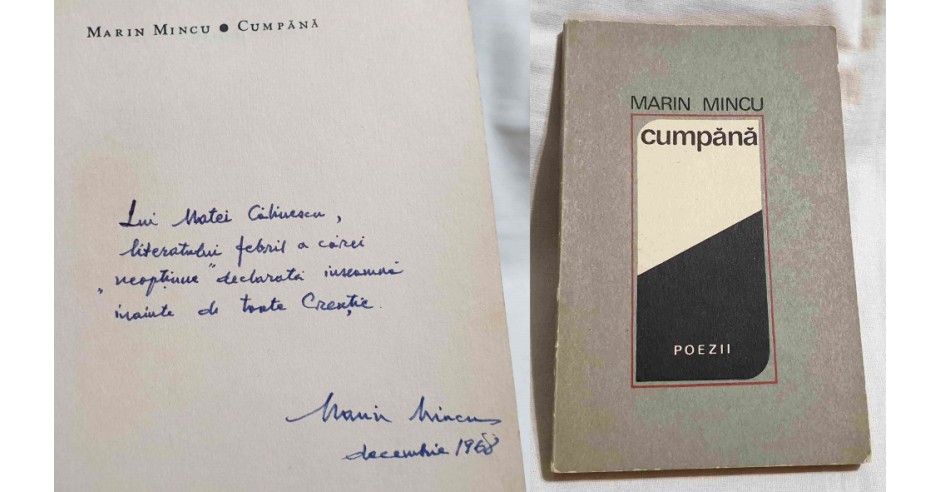 MARIN MINCU ● CUMPĂNĂ
Lui Matei Călinescu,
literatului febril a cărei
„neopțiune" declarată înseamnă
înainte de toate Creație.
Marin Mincu
decembrie 1968
MARIN MINCU
cumpănă
POEZII